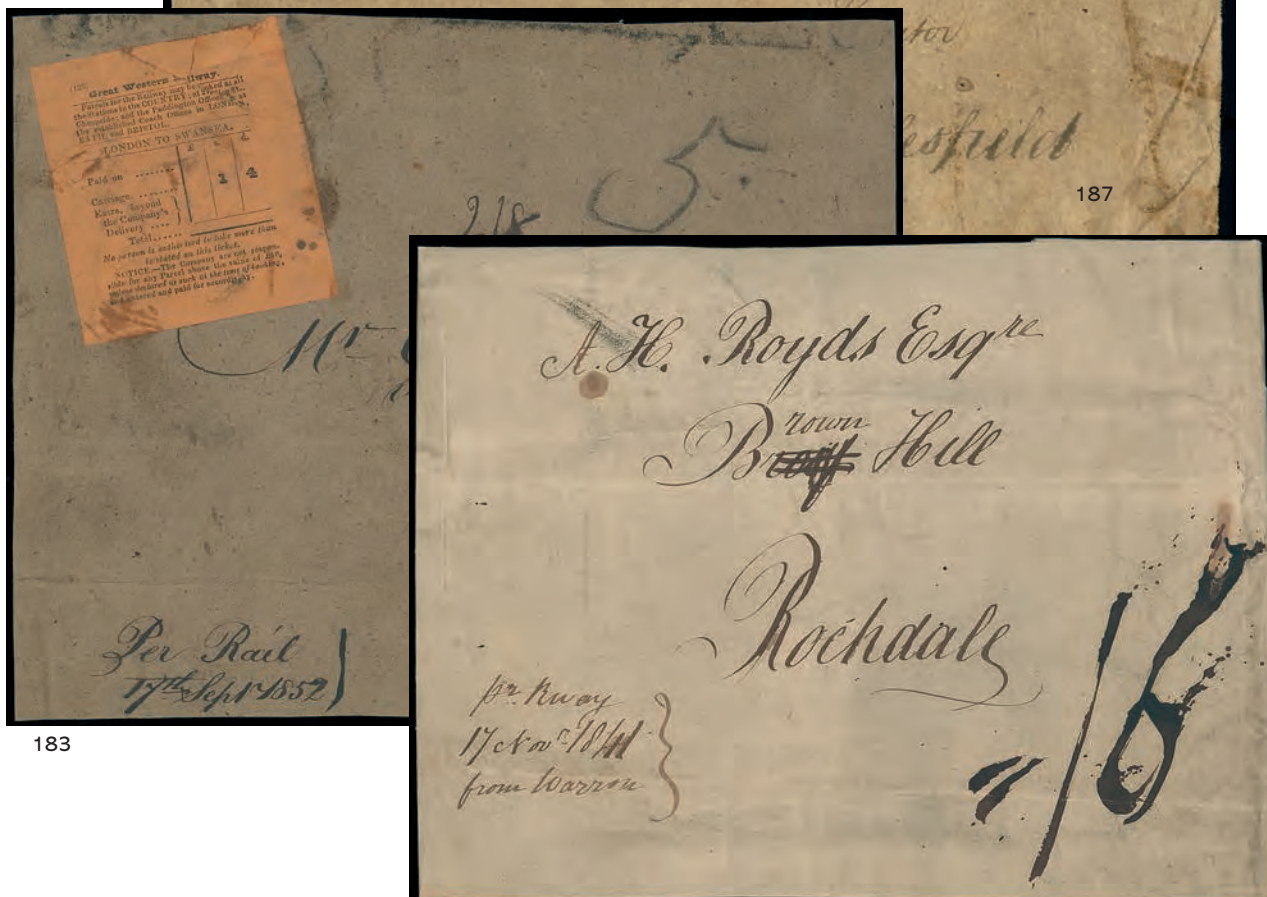 Great Western Railway.
Parcels for the Railway may be booked at all
the Stations in the COUNTRY; at
Cheapside; and the Paddington Office; & at
the established Coach Offices in LONDON,
BATH, and BRISTOL.
LONDON TO SWANSEA.
Paid on ........
1 4
Carriage. ........
Extra, beyond
the Company's
Delivery ....
Total......
No person is authorised to take more than
is stated on this ticket.
NOTICE.—The Company are not respon-
sible for any Parcel above the value of
unless declared as such at the time of booking,
and entered and paid for accordingly.
5
Mr
Per Rail
17th Sepr 1852
183
esfield
187
A. H. Royds Esqre
rown
B Hill
Rochdale
pr. Rway
17 Novr 1841
from
/6